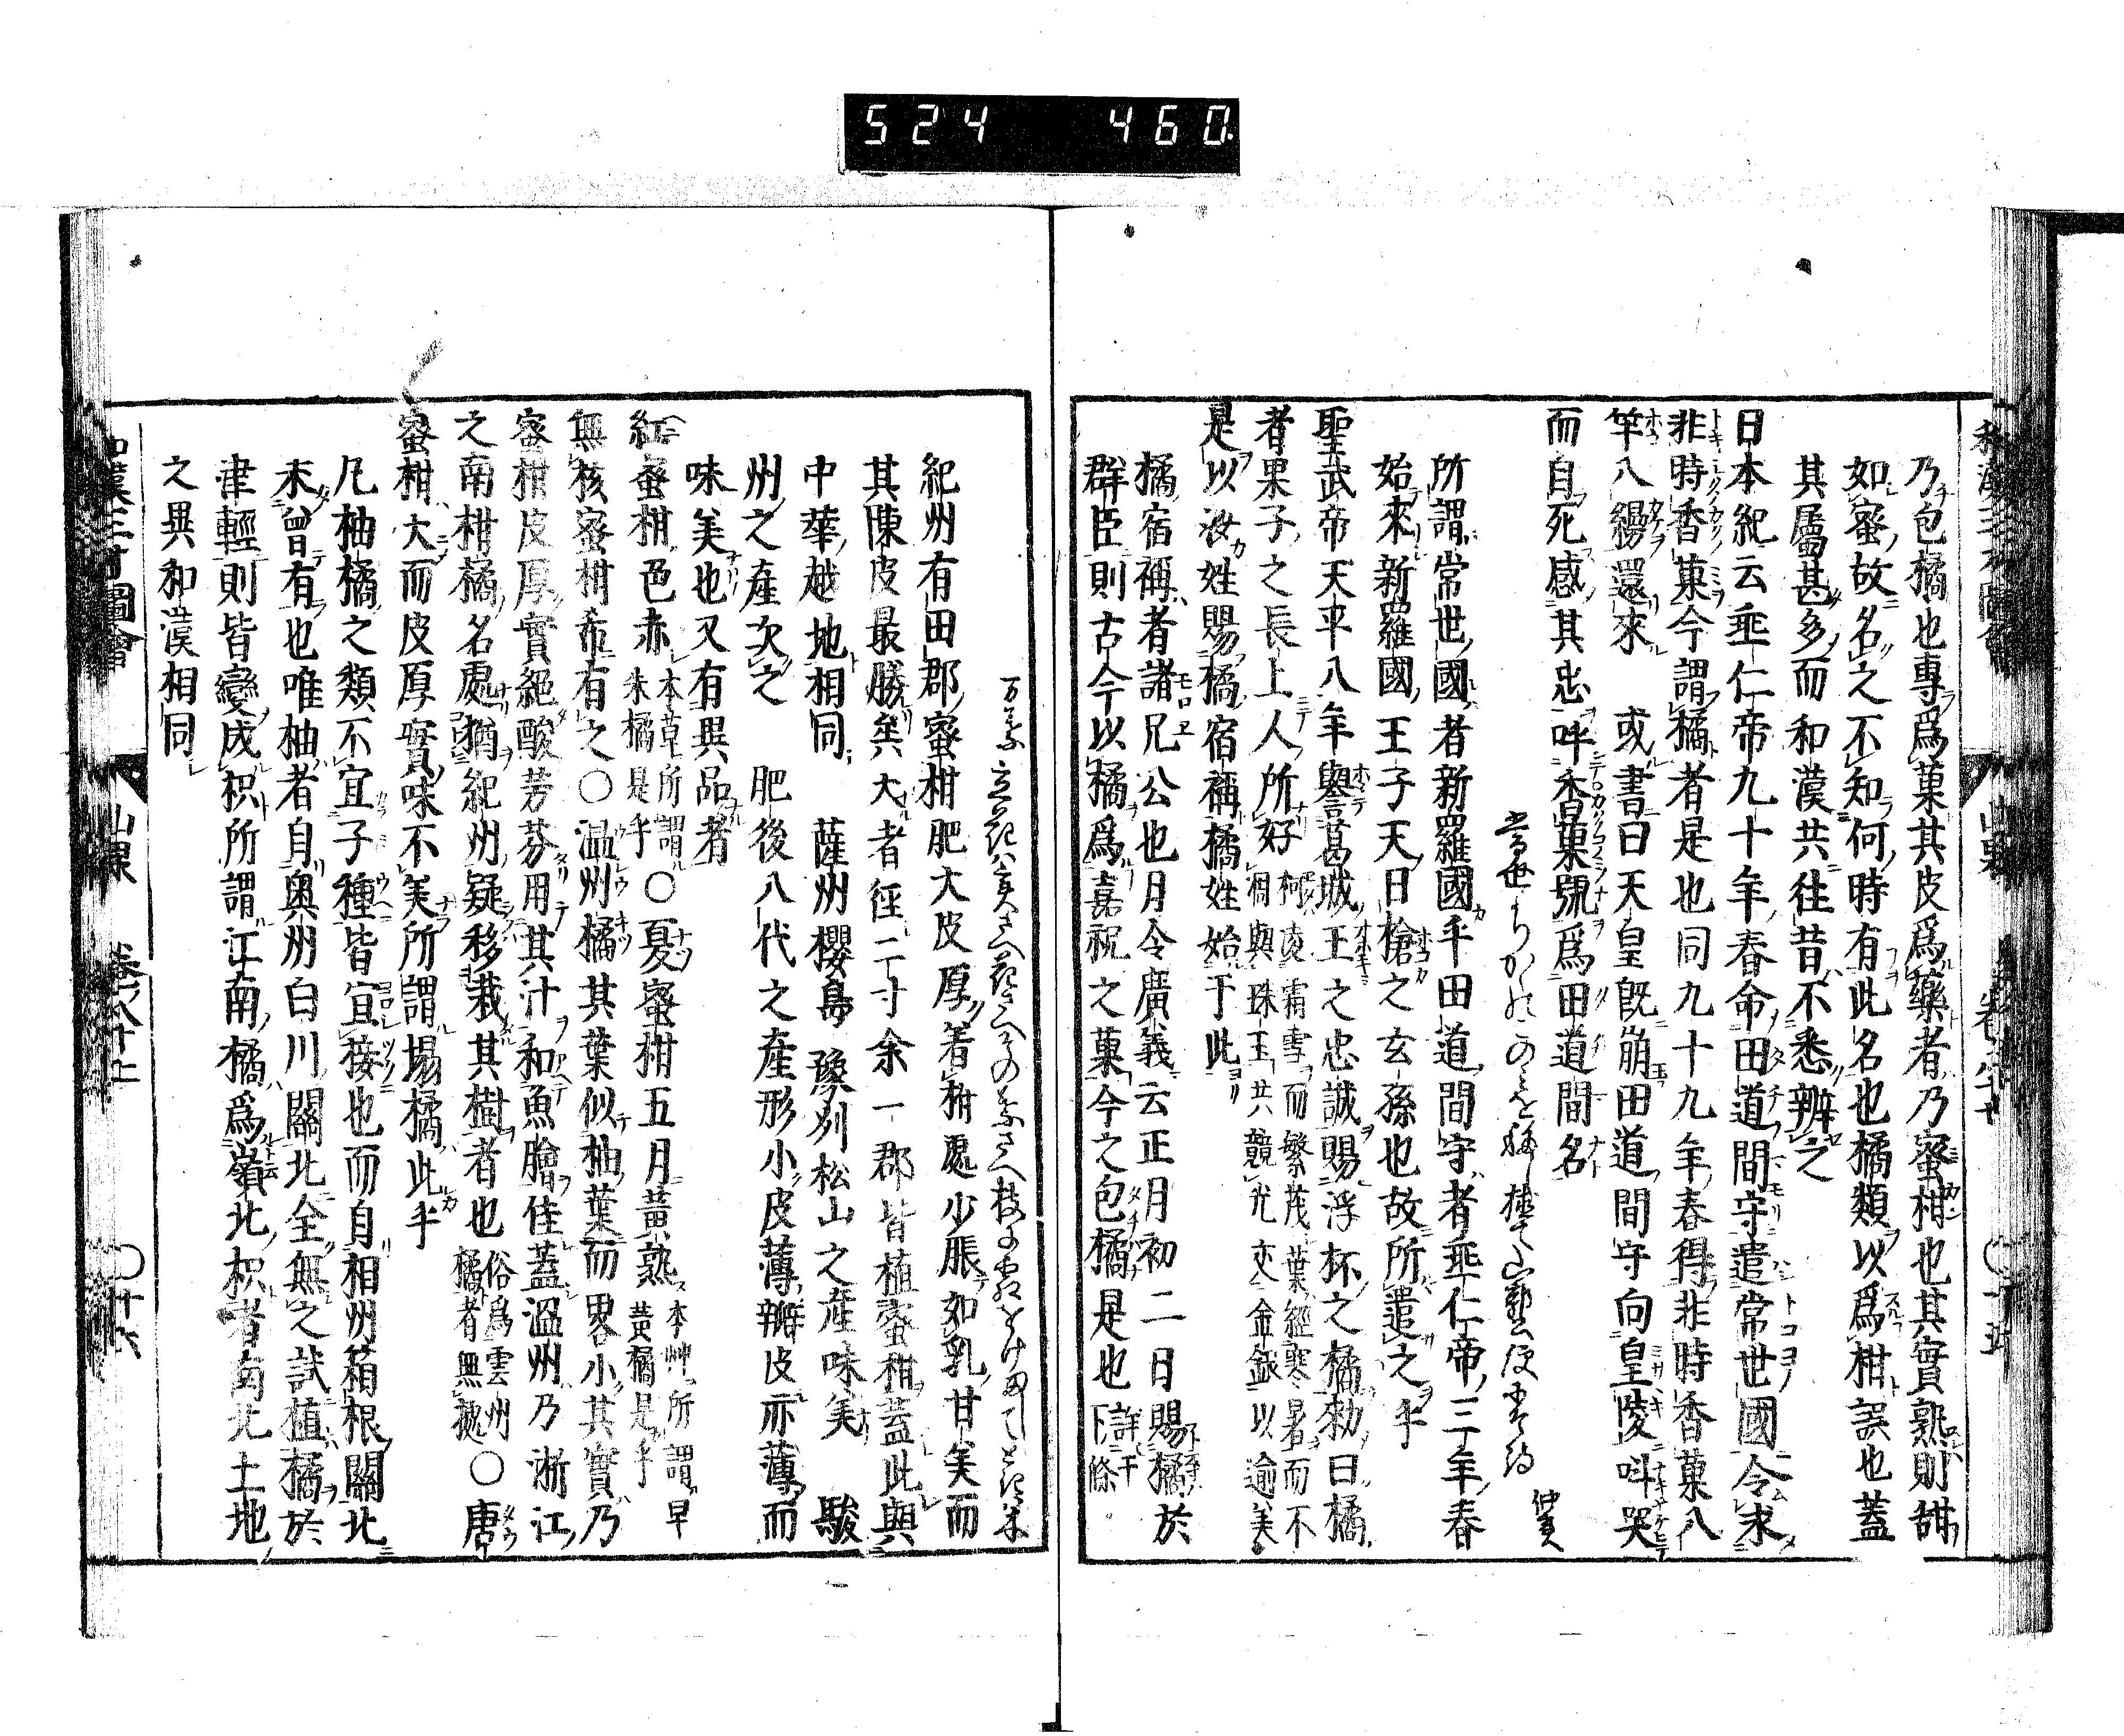 524 460
乃包橘也專爲菓其皮爲藥者乃蜜柑也其實熟則甜
如蜜故名之不知何時有此名也橘類以爲柑誤也蓋
其屬甚多而和漢共往昔不悉辨之
日本紀云垂仁帝九十年春命田道間守遣常世國令求
非時香菓今謂橘者是也同九十九年春得非時香菓八
竿八縵還來 或書曰天皇既崩田道間守向皇陵叫哭
而自死感其忠呼香菓號爲田道間名
仲實
所謂常世國者新羅國乎田道間守者垂仁帝三年春
始來新羅國王子天日槍之玄孫也故所遣之乎
聖武帝天平八年譽葛城王之忠誠賜浮杯之橘勑曰橘
者果子之長上人所好柯凌霜雪而繁茂葉經寒暑而不
凋與珠玉共競光交金銀以逾美
是以汝姓賜橘宿禰橘姓始于此
橘宿禰者諸兄公也月令廣義云正月初二日賜橘於
群臣則古今以橘爲嘉祝之菓今之包橘是也詳于下條
万葉 立花は実さへ花さへその葉さへ枝に霜をけましてときは木
紀州有田郡蜜柑肥大皮厚着柑處少脹如乳甘美而
其陳皮最勝矣大者徑二寸余一郡皆植蜜柑蓋此與
中華越地相同 薩州櫻島 豫州松山之產味美 駿
州之產次之 肥後八代之產形小皮薄瓣皮亦薄而
味美也又有異品者
紅蜜柑色赤本草所謂朱橘是乎〇夏蜜柑五月黃熟本艸所謂早黃橘是乎
無核蜜柑希有之〇溫州橘其葉似柚葉而畧小其實乃
蜜柑皮厚實絕酸芳芬用其汁和魚膾佳蓋溫州乃浙江
之南柑橘名處猶紀州疑移栽其樹者也俗爲雲州橘者無據〇唐
蜜柑大而皮厚實味不美所謂塌橘此乎
凡柚橘之類不宜子種皆宜接也而自相州箱根關北
未曾有也唯柚者自奧州白川關北全無之試植橘於
津輕則皆變成枳所謂江南橘爲嶺北枳者南北土地
之異和漢相同
山果